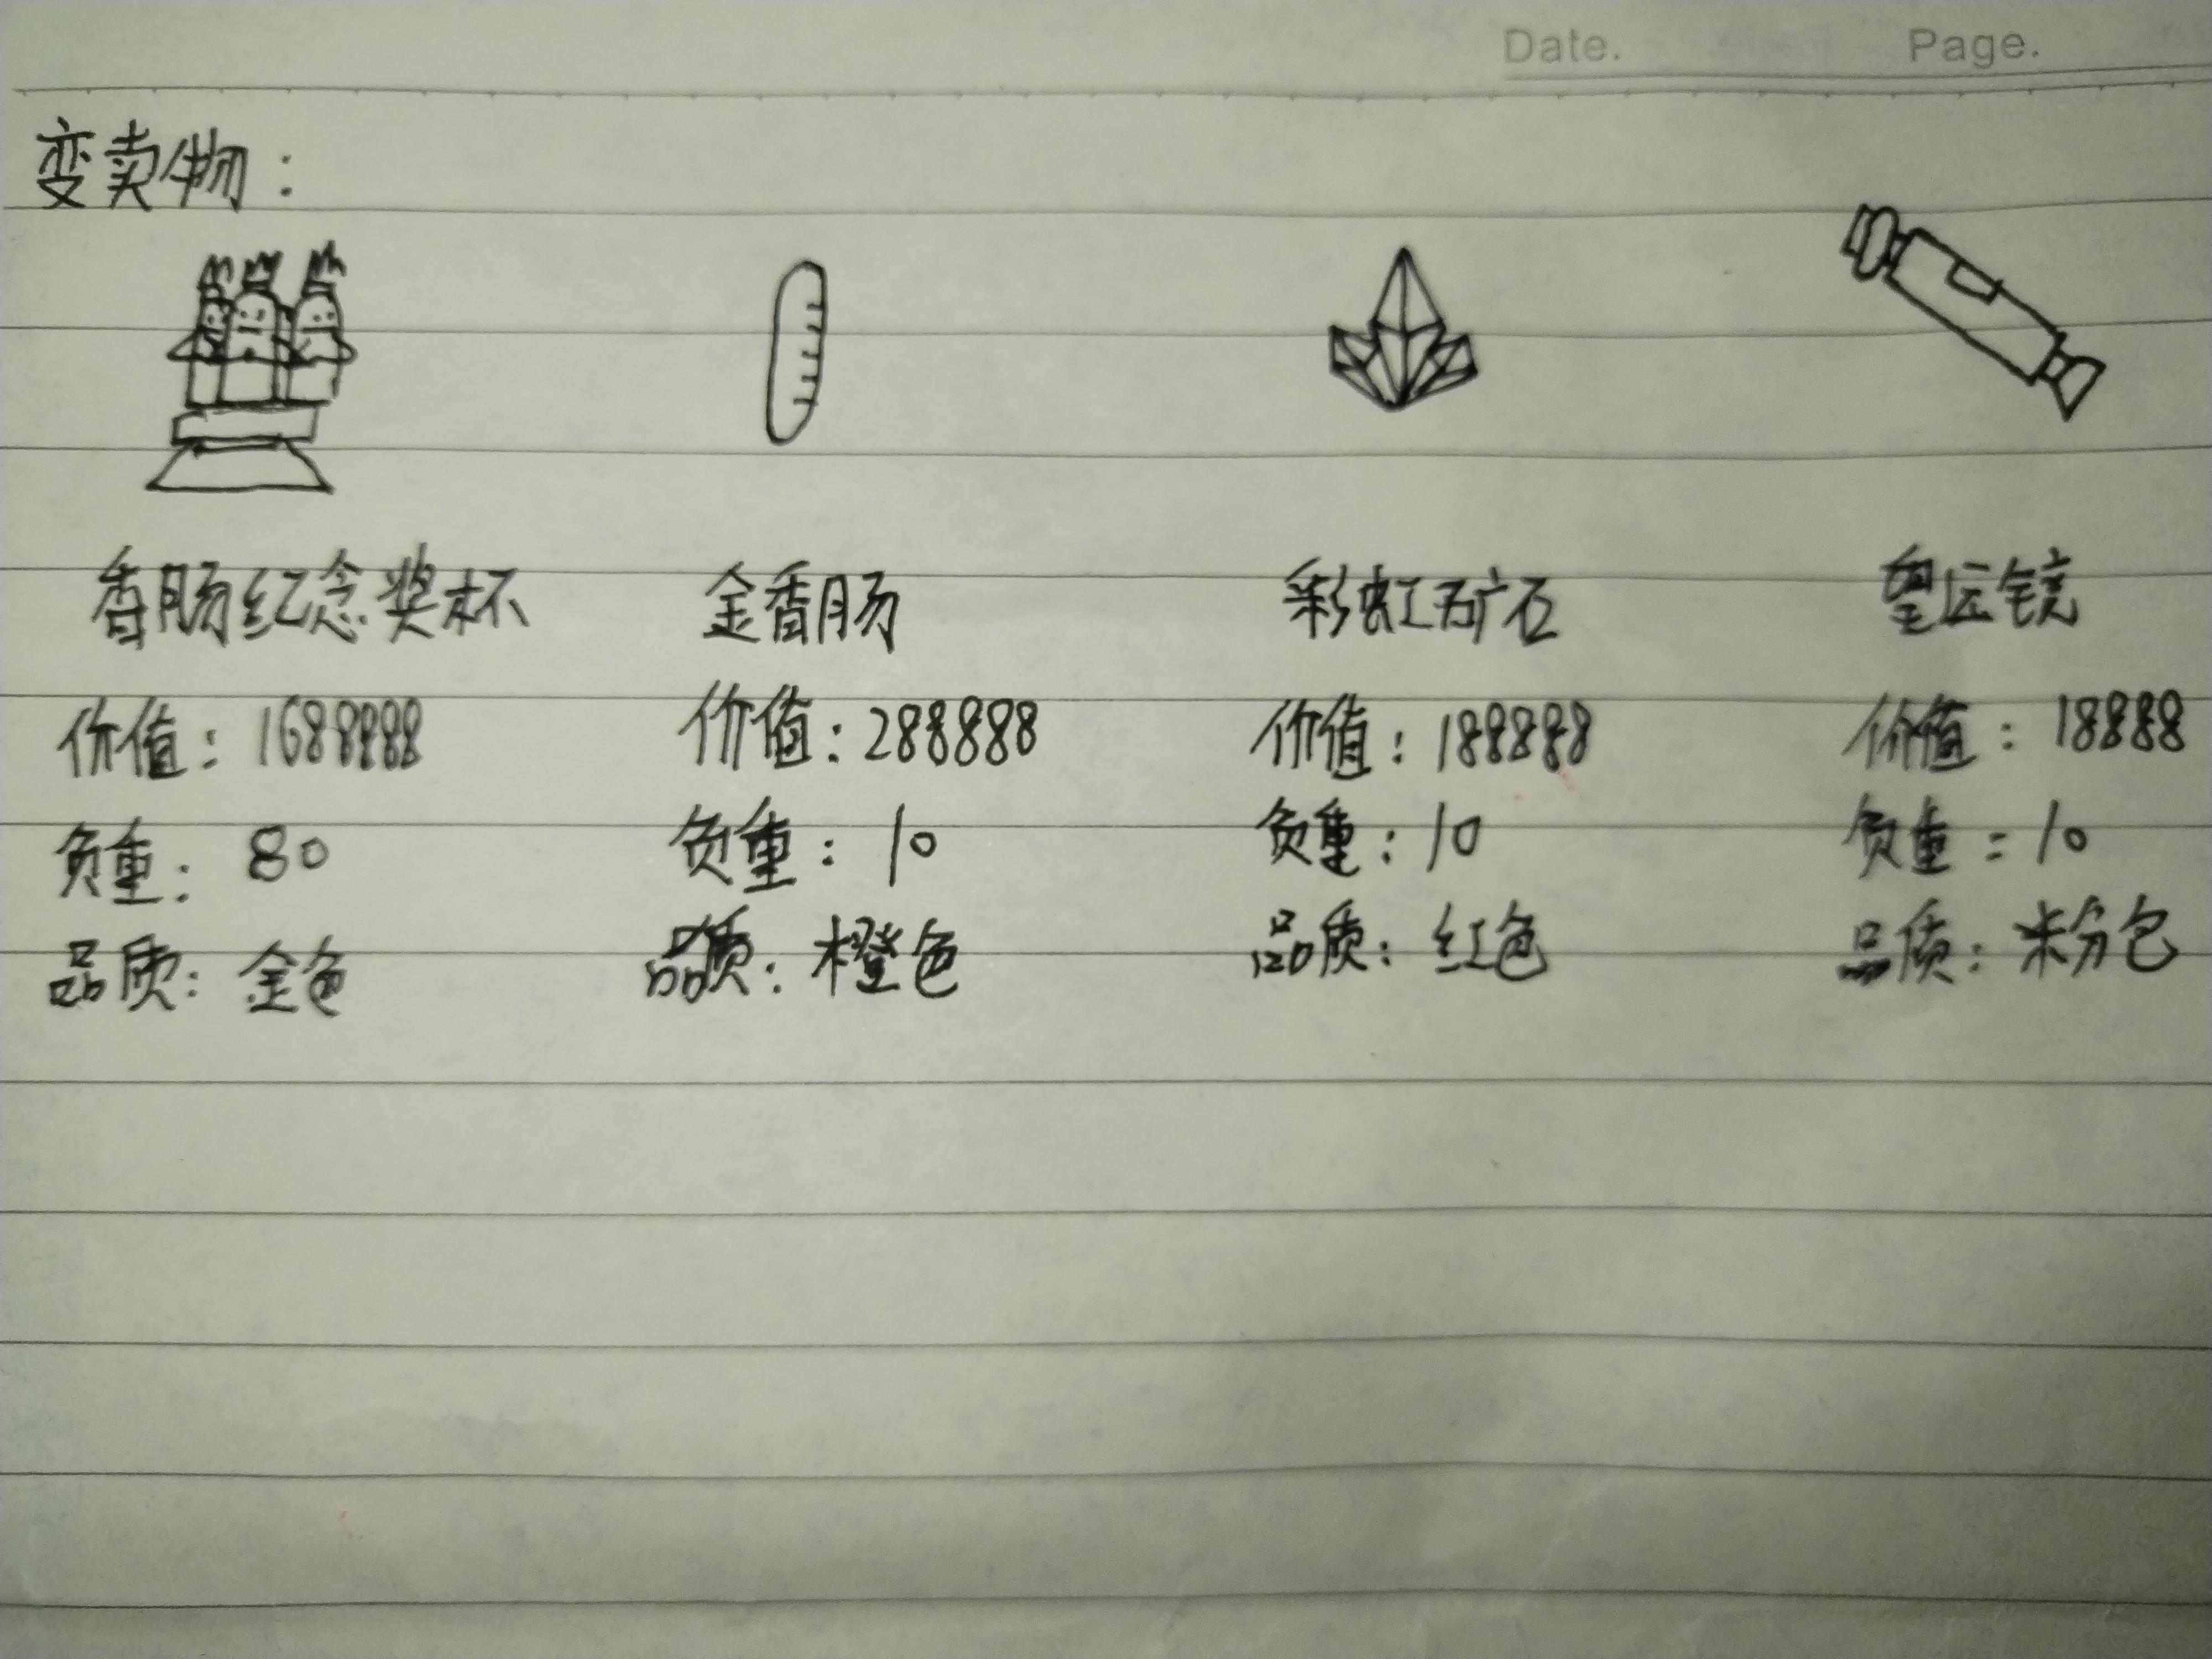 Date. Page.
变卖物:
香肠纪念奖杯 金香肠 彩虹矿石 望远镜
价值: 1688888 价值: 288888 价值: 188888 价值: 18888
负重: 80 负重: 10 负重: 10 负重: 10
品质: 金色 品质: 橙色 品质: 红色 品质: 粉色